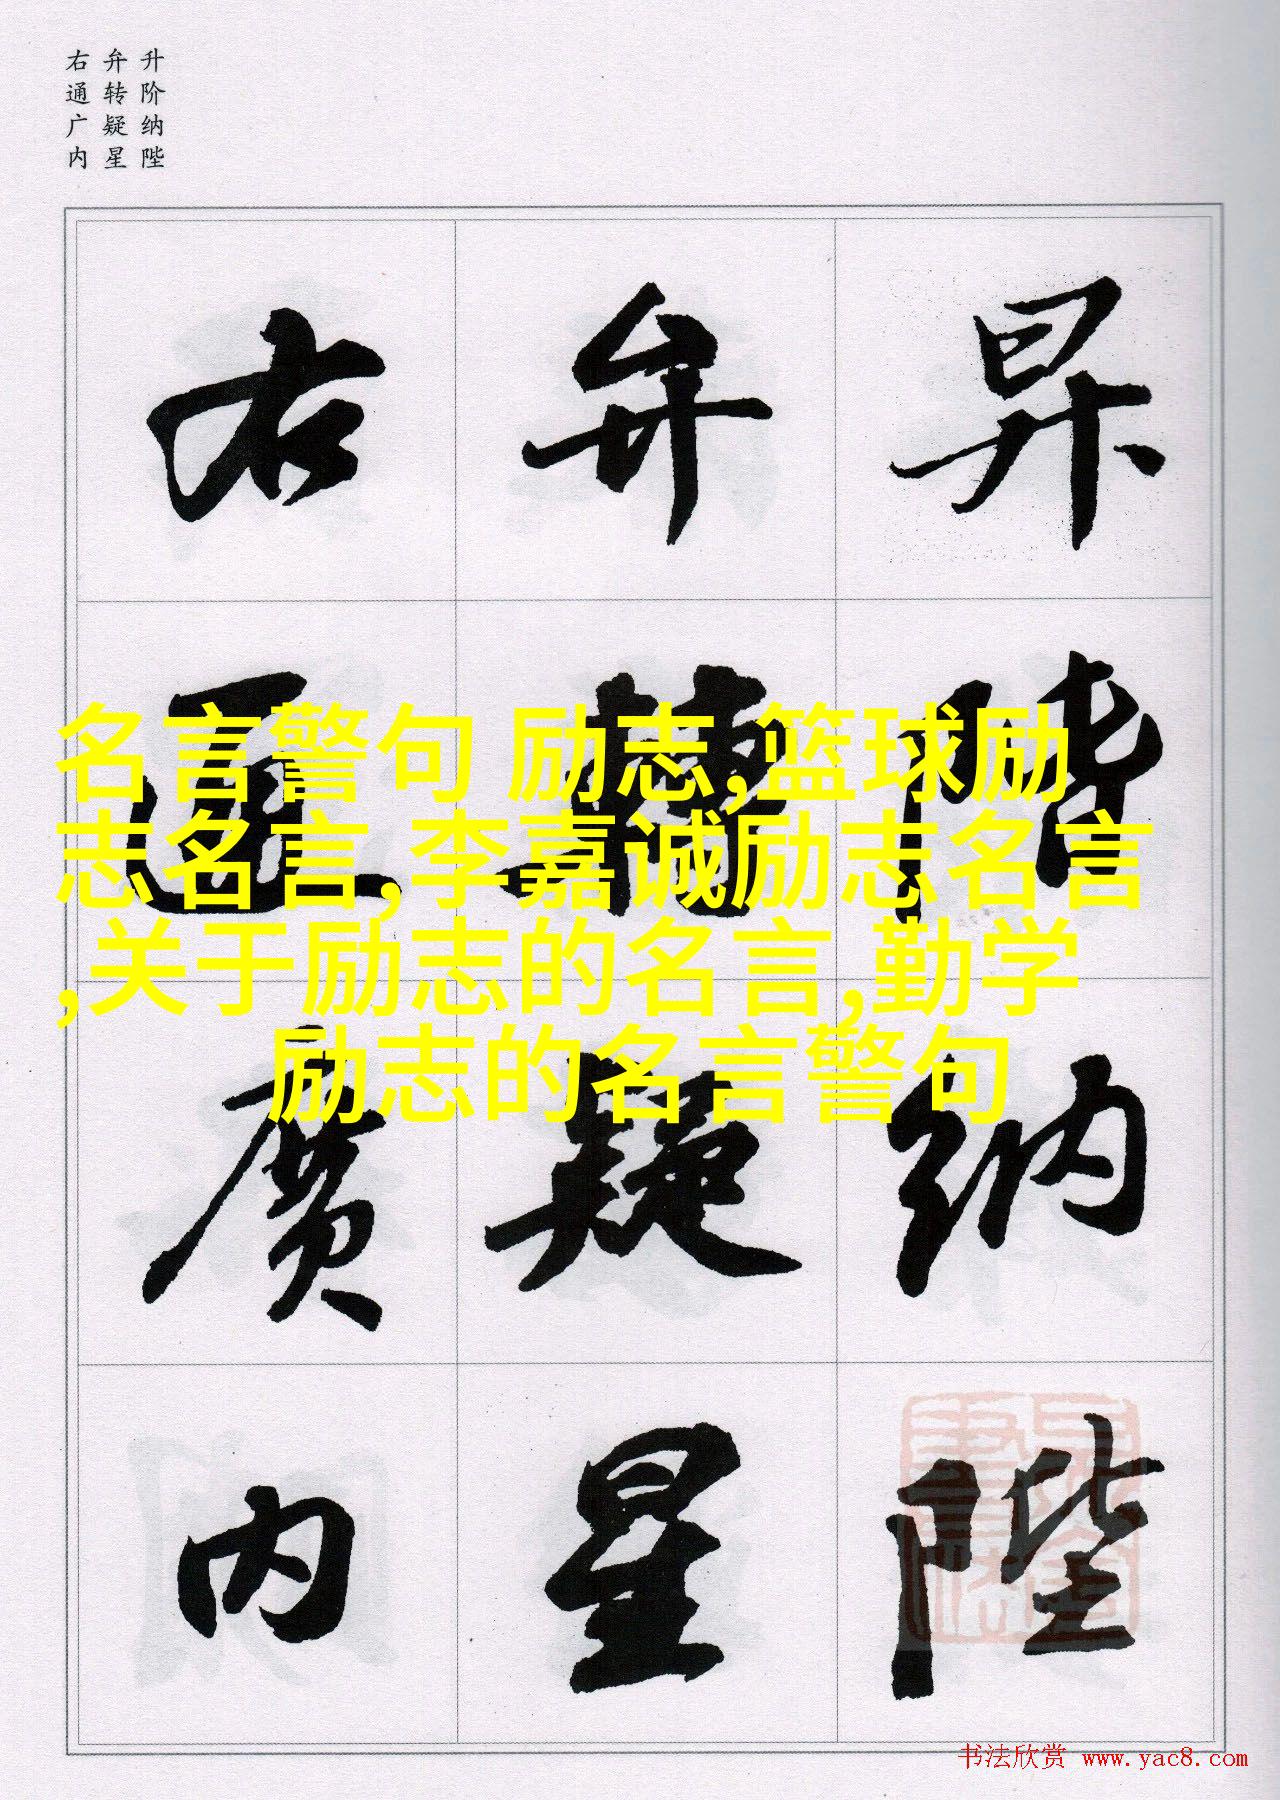 升阶纳陛
弁转疑星
右通广内
昇階納陛
弁轉疑星
右通廣内
名言警句 励志,篮球励
志名言,李嘉诚励志名言
,关于励志的名言,勤学
励志的名言警句
书法欣赏 www.yac8.com